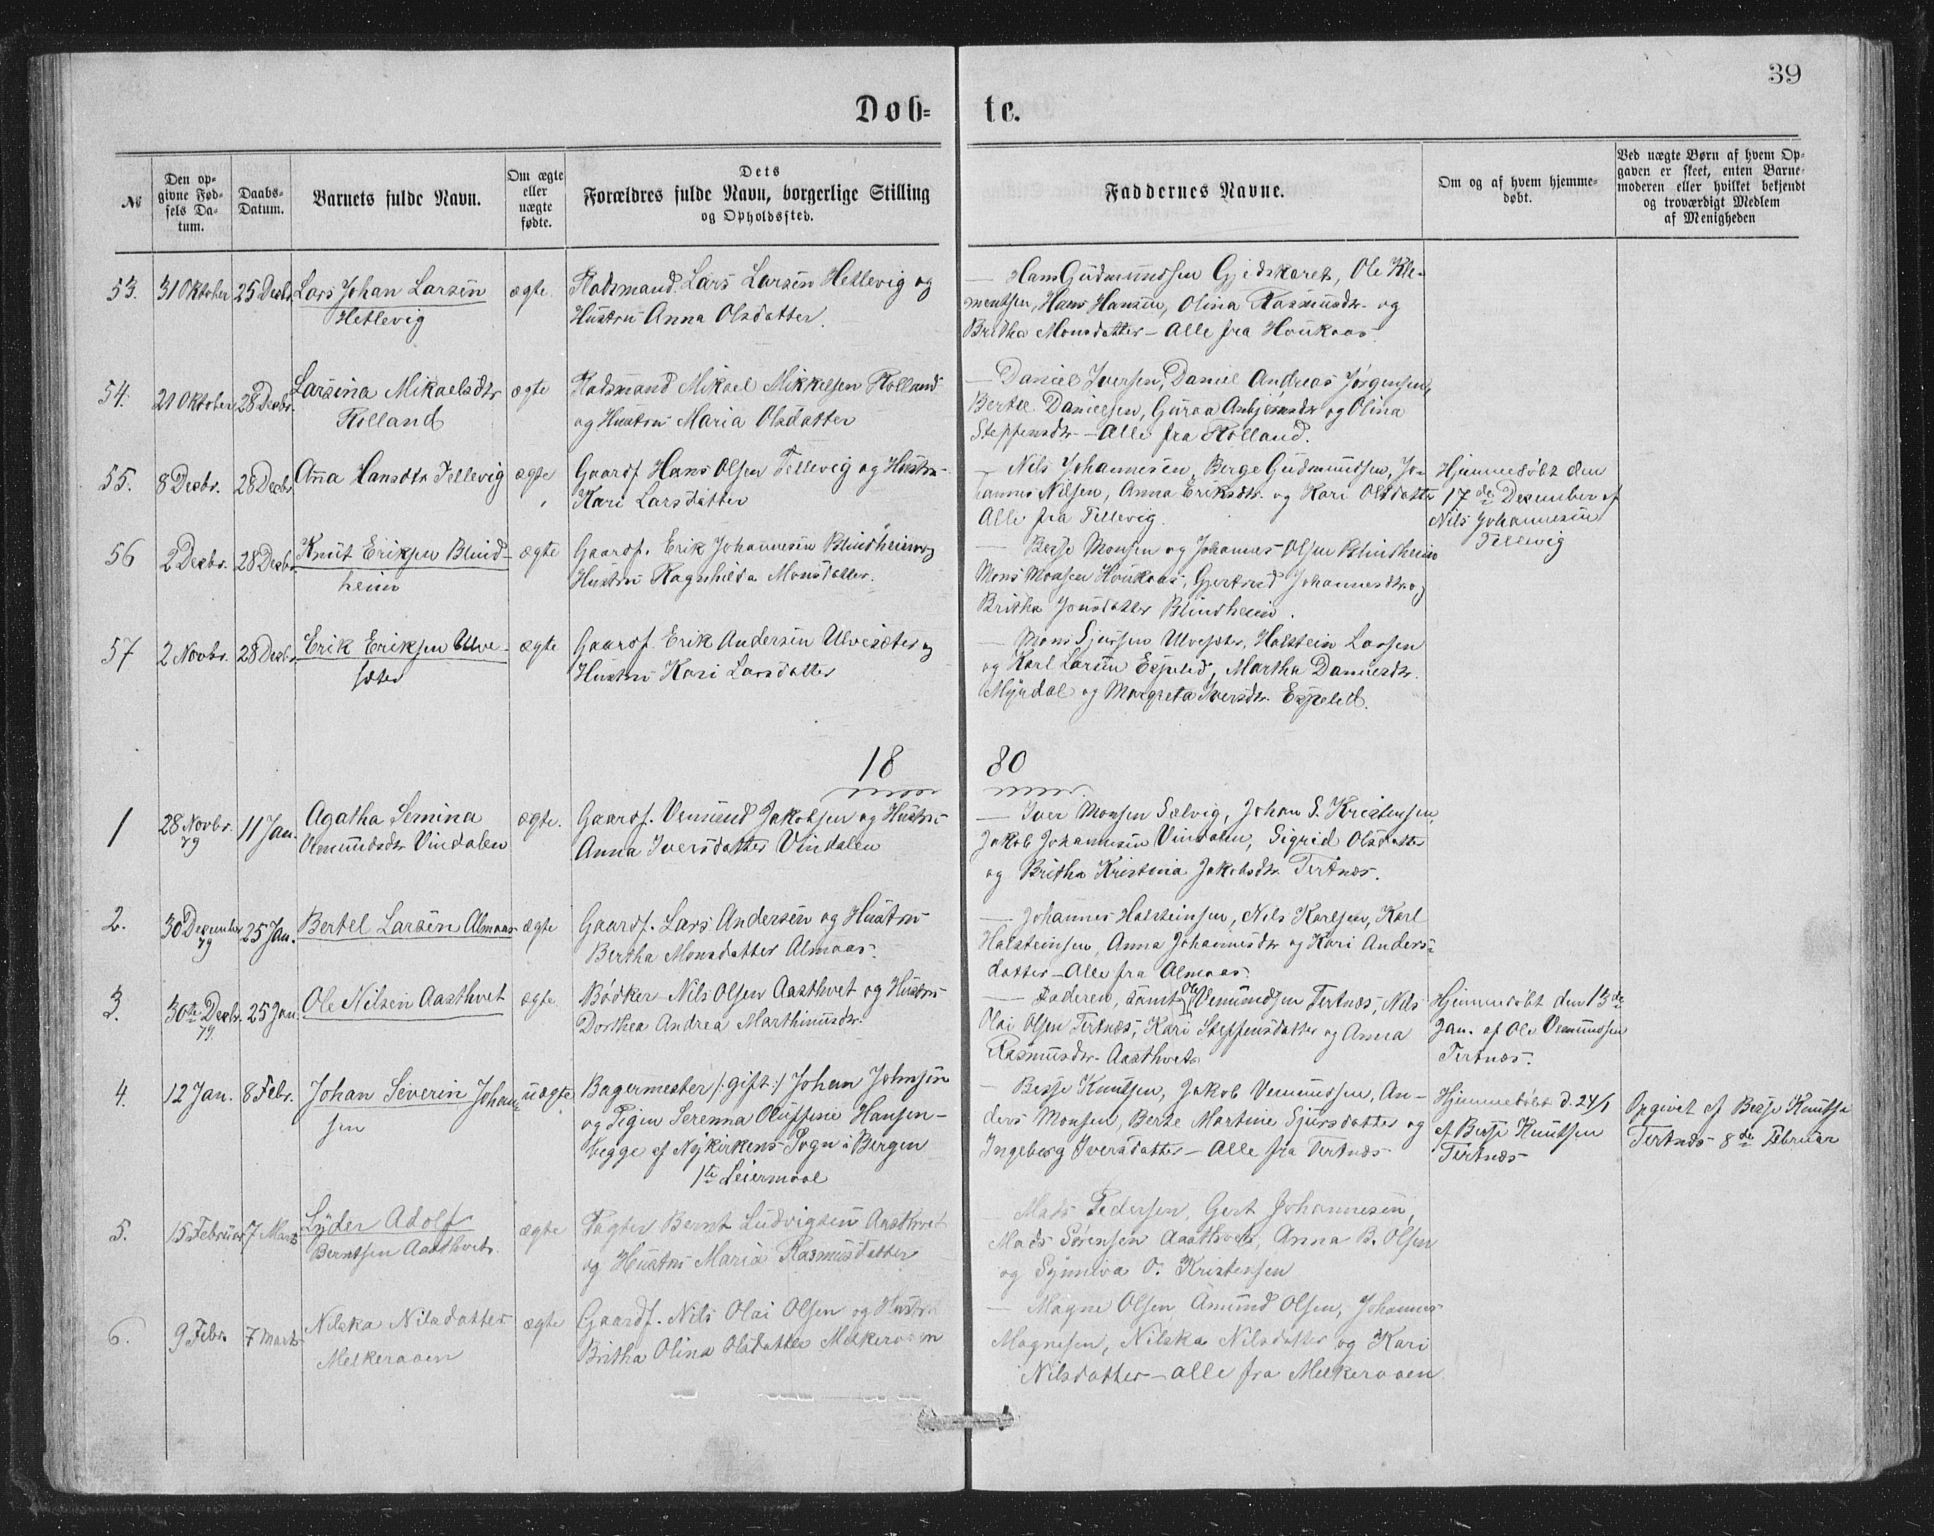 39
Døb= te.
№
Den op-
givne Fød-
sels Da-
tum.
Daabs-
Datum.
Barnets fulde Navn.
Om ægte
eller
uægte
fødte.
Dets
Forældres fulde Navn, borgerlige Stilling
og Opholdssted.
Faddernes Navne.
Om og af hvem hjemme-
døbt.
Ved uægte Børn af hvem Op-
gaven er skeet, enten Barne-
moderen eller hvilket bekjendt
og troværdigt Medlem
af Menigheden
53. 31 Oktober 25 Decbr. Lars Johan Larsen
Hetlevig
ægte.
Pladsmand Lars Larsen Hetlevig og
Hustru Anna Olsdatter.
— Hans Gudmundsen Gjedskaret, Ole Kle-
mentsen, Hans Hansen, Olina Rasmusdtr. og
Britha Monsdatter — Alle fra Houkaas.
54. 21 Oktober 28 Decbr. Larsina Mikaelsdtr
Rolland
ægte
Pladsmand Mikael Mikkelsen Rolland
og Hustru Maria Olsdatter
— Daniel Iversen, Daniel Andreas Jørgensen,
Bertel Danielsen, Guroa Anbjørnsdtr og Olina
Steffensdtr — Alle fra Rolland.
55. 8 Decbr. 28 Decbr. Anna Hansdtr Tellevig
ægte
Gaardf. Hans Olsen Tellevig og Hustru
Kari Larsdatter
— Nils Johannesen, Berge Gudmundsen, Jo-
hannes Nilsen, Anna Eriksdtr. og Kari Olsdatter
Alle fra Tellevig.
Hjemmedøbt den
17de December af
Nils Johannesen
Tellevig
56 2 Decbr. 28 Decbr. Knut Eriksen Blind-
heim
ægte
Gaardf. Erik Johannesen Blindheim og
Hustru Ragnhilda Monsdatter.
— Besse Monsen og Johannes Olsen Blindheim
Mons Monsen Houkaas, Gjertrud Johannesdtr. og
Britha Jonsdatter Blindheim.
57 2 Novbr. 28 Decbr. Erik Eriksen Ulve-
sæter
ægte
Gaardf. Erik Andersen Ulvesæter og
Hustru Kari Larsdatter
— Mons Sjursen Ulvesæter, Holstein Larsen
og Karl Larsen Espelid, Martha Danielsdtr.
Myrdal og Margreta Iversdtr. Espelid.
18 80
1 28 Novbr.
79
11 Jan. Agatha Semina
Vemundsdtr Vindalen
ægte.
Gaardf. Vemund Jakobsen og Hustru
Anna Iversdatter Vindalen
— Iver Monsen Salvig, Johan S. Kristensen,
Jakob Johannesen Vindalen, Sigrid Olsdatter
og Britha Kristina Jakobsdtr. Tertnæs.
2. 30 December
79
25 Jan. Bertel Larsen Almaas
ægte
Gaardf. Lars Andersen og Hustru
Bertha Monsdatter Almaas.
— Johannes Holsteinsen, Nils Karlsen, Karl
Holsteinsen, Anna Johannesdtr og Kari Anders-
datter — Alle fra Almaas.
3. 30te Decbr.
79.
25 Jan. Ole Nilsen Aasthvet
ægte
Bødker Nils Olsen Aasthvet og Hustru
Dorthea Andrea Marthinusdtr.
— Faderen, samt Ole Vemundsen Tertnæs, Nils
Olai Olsen Tertnæs, Kari Steffensdatter og Anna
Rasmusdtr. Aasthvet
Hjemmedøbt den 13de
Jan. af Ole Vemundsen
Tertnæs.
4. 12 Jan. 8 Febr. Johan Severin Johan-
sen
uægte
Bagermester /: gift :/ Johan Johnsen
og Pigen Serenna Oluffine Hansen —
begge af Nykirkens Sogn i Bergen
1te Leiermaal
— Besse Knutsen, Jakob Vemundsen, An-
ders Monsen, Berte Martine Sjursdatter og
Ingeborg Iversdatter — Alle fra Tertnæs
Hjemmedøbt d. 24/1
af Besse Knutsen
Tertnæs
Opgivet af Besse Knutsen
Tertnæs 8de Februar
5. 15 Februar 7 Marts Lyder Adolf
Berntsen Aasthvet.
ægte
Bernt Ludvigsen Aasthvet
og Hustru Maria Rasmusdatter
— Mads Pedersen, Gert Johannesen,
Mads Sørensen Aasthvet, Anna B. Olsen
og Synniva O. Kristensen
6. 9 Febr. 7 Marts Nilska Nilsdatter
Melkeraaen
ægte
Gaardf. Nils Olai Olsen og Hustru
Britha Olina Olsdatter Melkeraaen
— Magne Olsen, Amund Olsen, Johannes
Magnesen, Nilska Nilsdatter og Kari
Nilsdatter — alle fra Melkeraaen